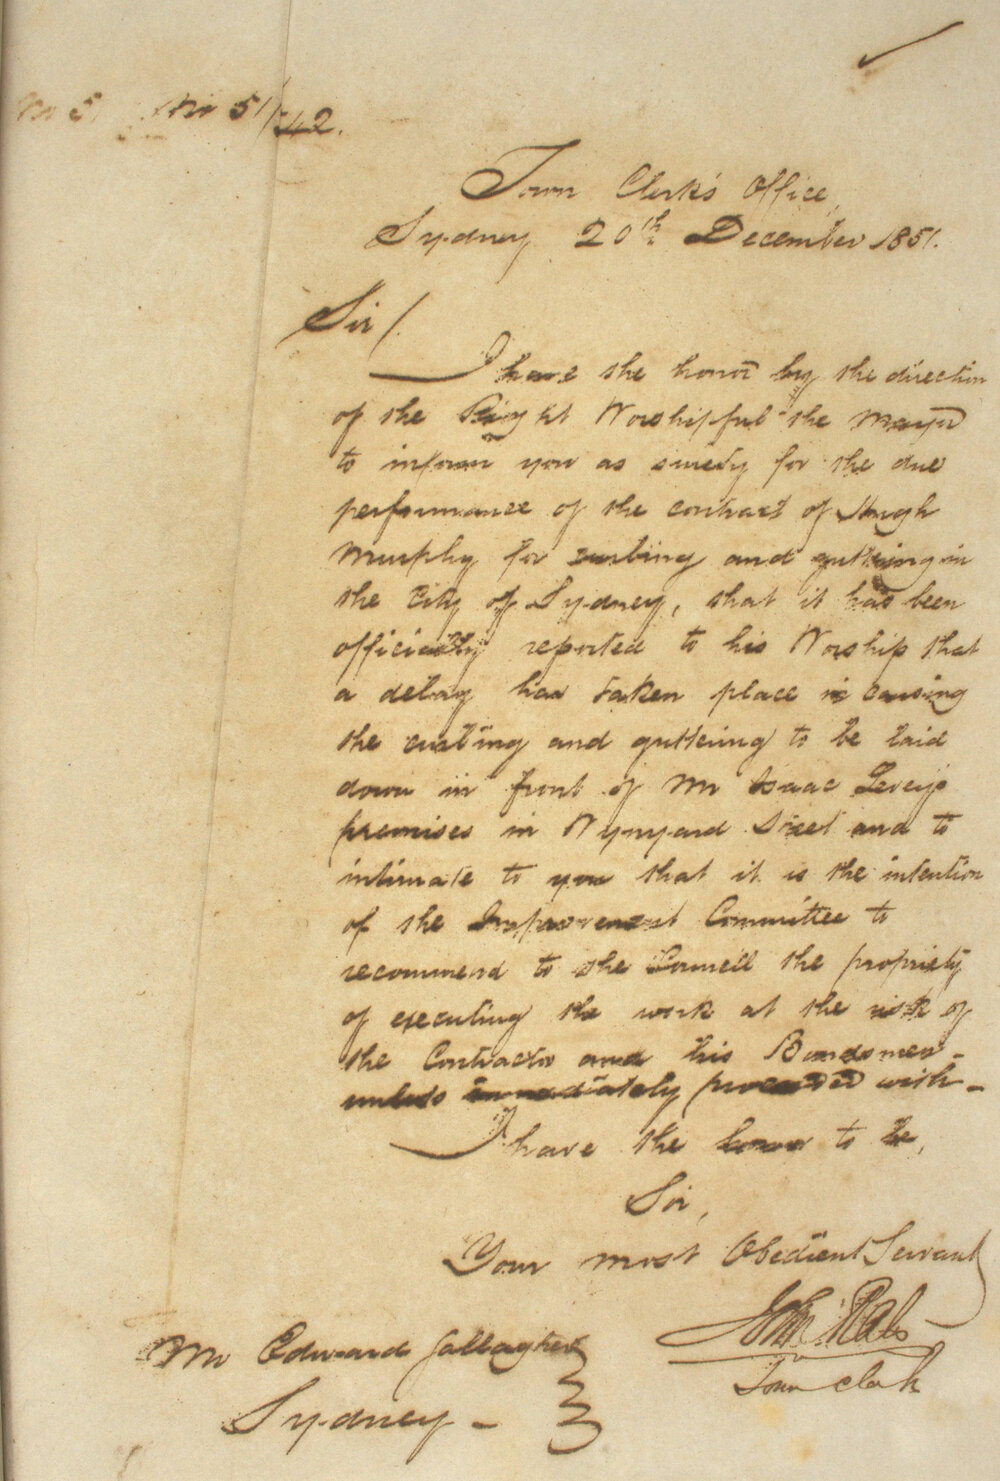 No 51/42.
Town Clerk's Office,
Sydney 20th December 1851.
Sir/.
I have the honor by the direction
of the Right Worshipful the Mayor
to inform you as surety for the due
performance of the contract of Hugh
Murphy for curbing and guttering in
the City of Sydney, that it has been
officially reported to his Worship that
a delay has taken place in causing
the curbing and guttering to be laid
down in front of Mr Isaac Levey's
premises in Wynyard Street and to
intimate to you that it is the intention
of the Improvement Committee to
recommend to the Council the propriety
of executing the work at the risk of
the Contractor and his Bondsmen
unless immediately proceeded with
I have the honor to be,
Sir,
Your most Obedient Servant
John Rae
Town Clerk
Mr Edward Gallagher
Sydney